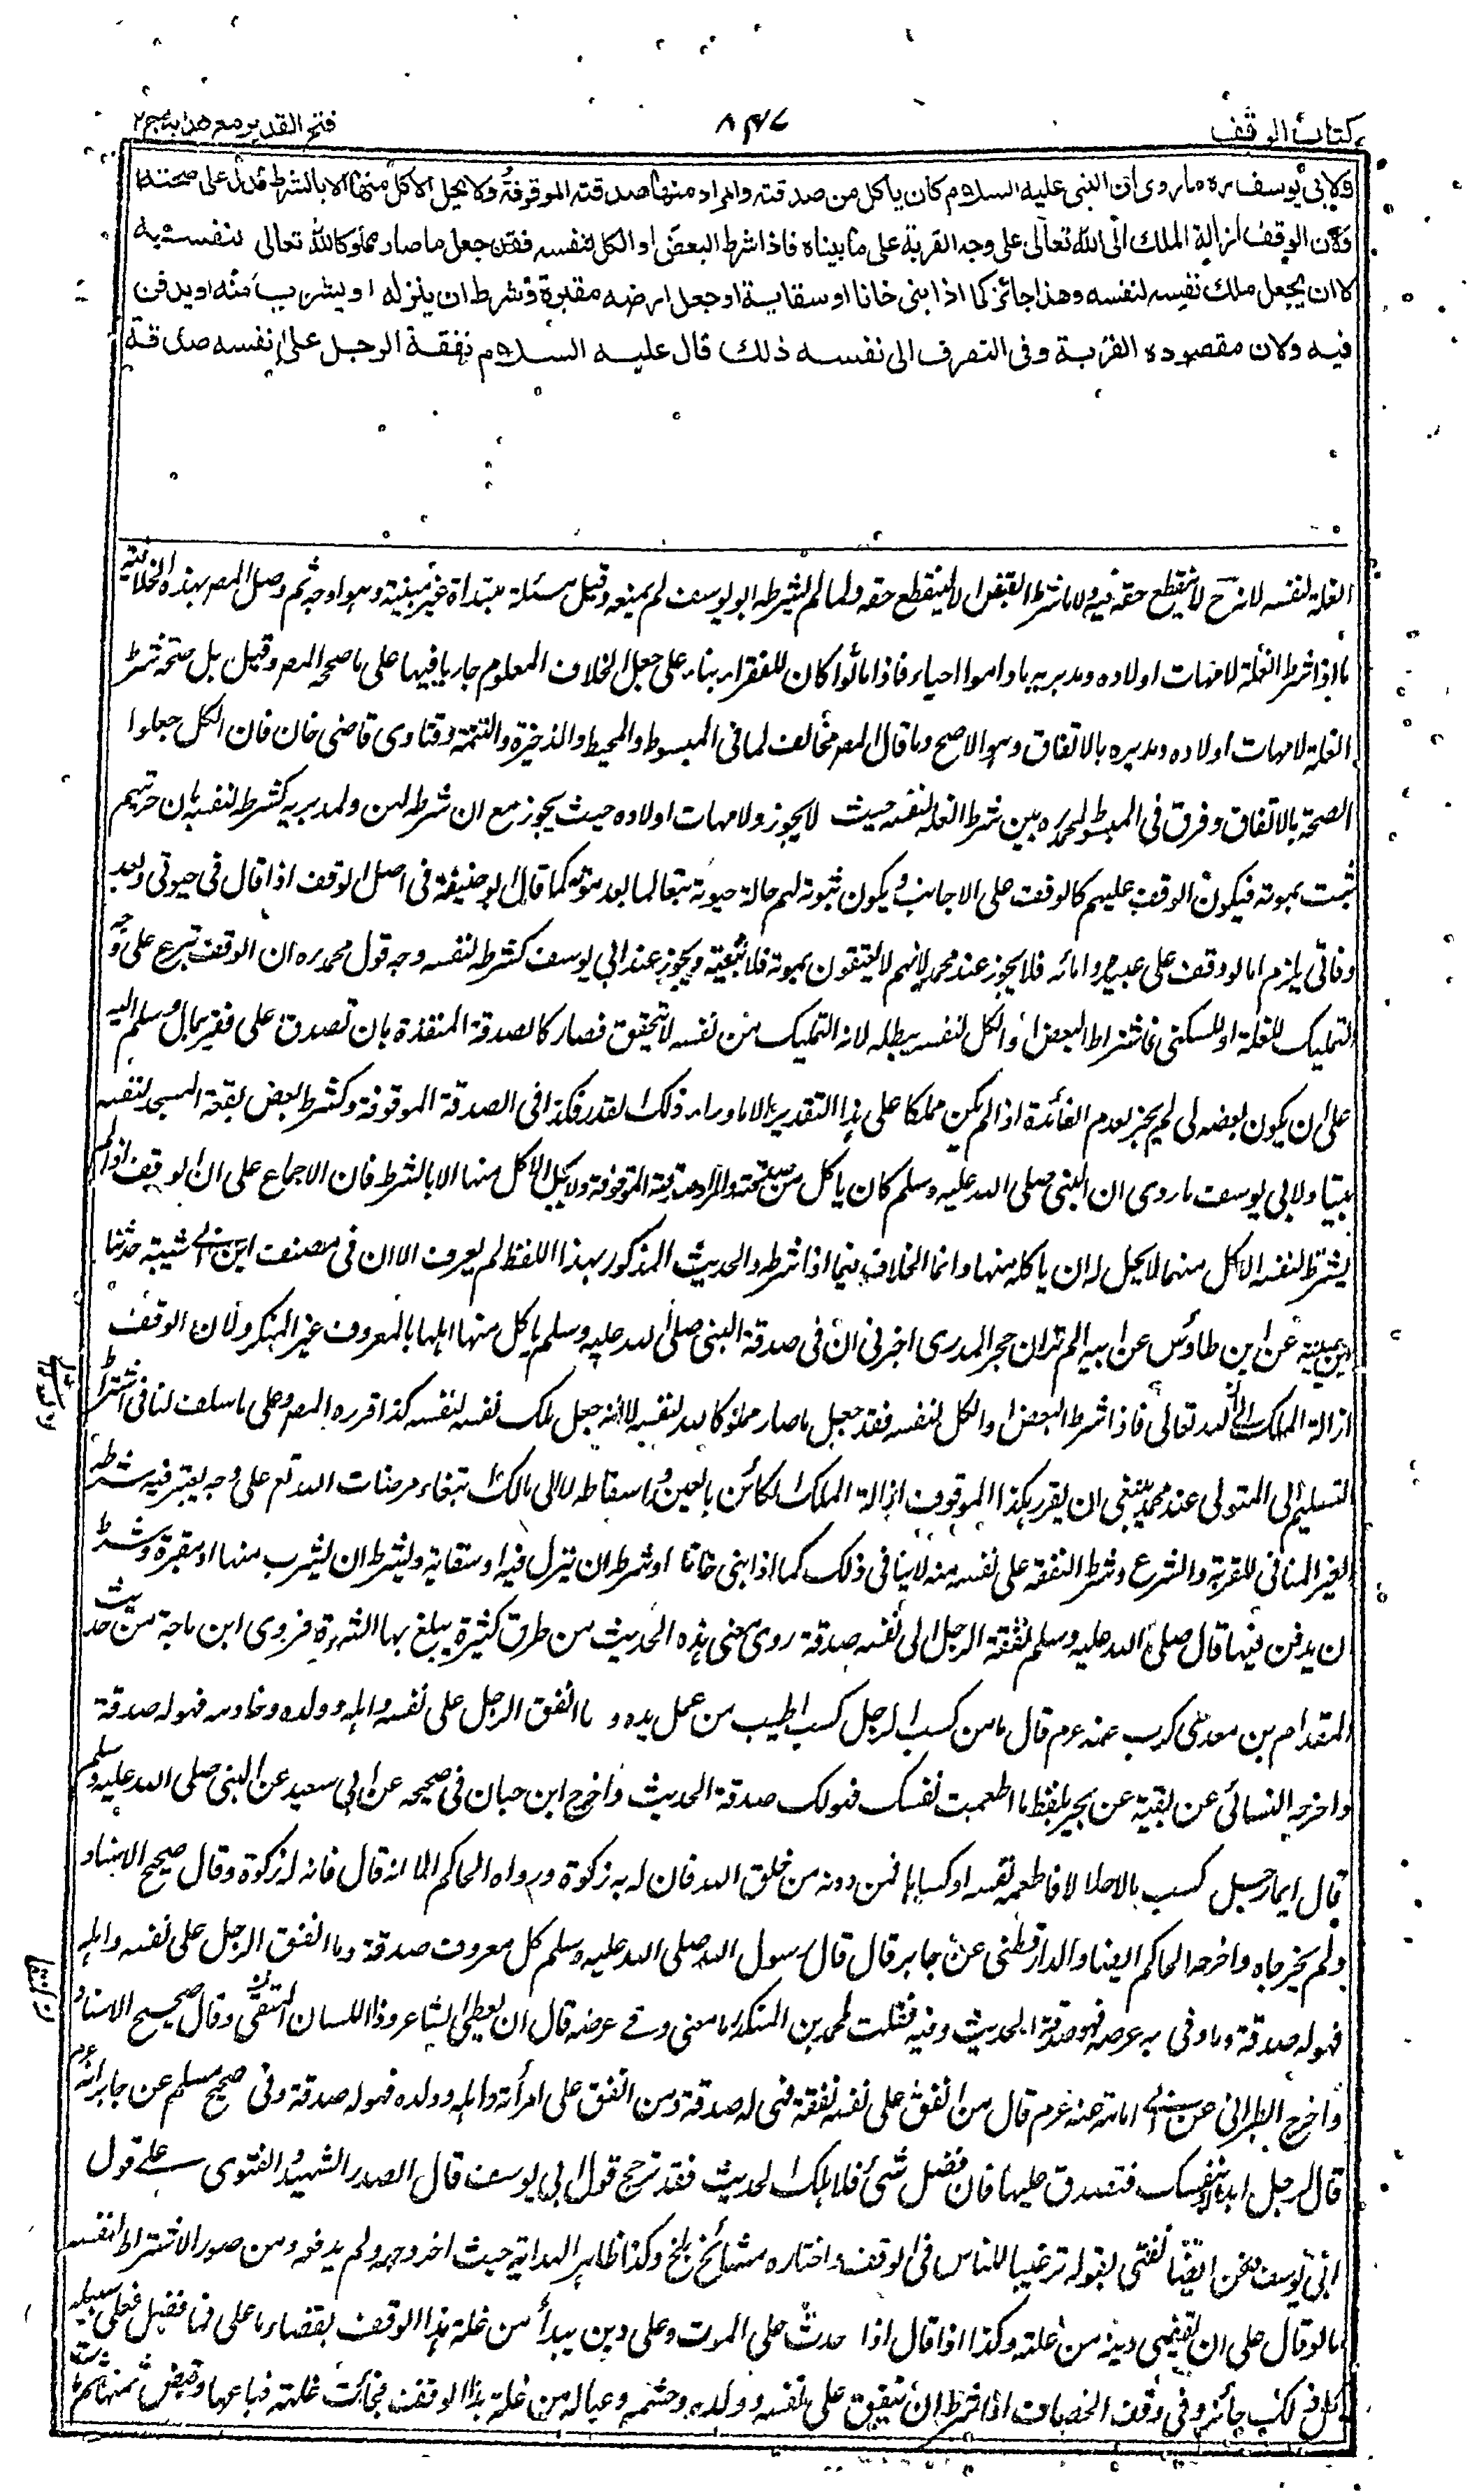 كتاب الوقف
٨٤٧
فتح القدير مع هدايه ج٢
ولابى يوسف ره ما روى ان النبى عليه السلام كان ياكل من صدقته والمراد منها صدقته الموقوفة ولا يحل الاكل منها الا بالشرط فدل على صحته
ولان الوقف ازالة الملك الى الله تعالى على وجه القربة على ما بيناه فاذا شرط البعض او الكل لنفسه فقد جعل ما صار مملوكا لله تعالى لنفسه
لا ان يجعل ملك نفسه لنفسه وهذا جائز كما اذا بنى خانا او سقاية او جعل ارضه مقبرة وشرط ان ينزله او يشرب منه او يدفن
فيه ولان مقصوده القربة وفى التصرف الى نفسه ذلك قال عليه السلام نفقة الرجل على نفسه صدقة
الغلة لنفسه لانه ح لا ينقطع حقه فيه ولا ما شرط القبض الا لينقطع حقه ولما لم يشترطه ابو يوسف لم يمنعه وقيل مسئلة مبتدأة غير مبنية وهو اوجه ثم وصل المصر بهذه الخلافية
ما اذا شرط الغلة لامهات اولاده ومدبريه ما داموا احياء فاذا ماتوا كان للفقراء بناء على جعل الخلاف المعلوم جاريا فيها على ما صححه المصر وقيل بل صحة شرط
الغلة لامهات اولاده ومدبريه بالاتفاق وهو الاصح وما قال المصر مخالف لما فى المبسوط والمحيط والذخيرة والتتمة وفتاوى قاضى خان فان الكل جعلوا
الصحة بالاتفاق وفرق فى المبسوط لمحمد ره بين شرط الغلة لنفسه حيث لا يجوز ولامهات اولاده حيث يجوز مع ان شرطه لهن ولمدبريه كشرطه لنفسه بان حريتهم
ثبتت بموته فيكون الوقف عليهم كالوقف على الاجانب ويكون ثبوته لهم حالة حيوته تبعا لما بعد موته كما قال ابو حنيفة فى اصل الوقف اذا قال فى حيوتى وبعد
وفاتى يلزم اما لو وقف على عبيده وامائه فلا يجوز عند محمد لانهم لا يعتقون بموته فلا تبعية ويجوز عند ابى يوسف كشرطه لنفسه وجه قول محمد ره ان الوقف تبرع على وجه
التمليك للغلة او للسكنى فاشتراط البعض او الكل لنفسه يبطله لانه التمليك من نفسه لا يتحقق فصار كالصدقة المنفذة بان تصدق على فقير بمال وسلم اليه
على ان يكون بعضه لى لم يجز لعدم الفائدة اذا لم يكن مملكا على هذا التقدير الا ما وراء ذلك القدر فكذا فى الصدقة الموقوفة وكشرط بعض بقعة المسجد لنفسه
بيتا ولابى يوسف ما روى ان النبى صلى الله عليه وسلم كان ياكل من صدقته والمراد صدقته الموقوفة ولا يحل الاكل منها الا بالشرط فان الاجماع على ان الوقف اذا لم
يشترط لنفسه الاكل منها لا يحل له ان ياكله منها وانما الخلاف فيما اذا شرطه والحديث المذكور بهذا اللفظ لم يعرف الا ان فى مصنف ابن ابى شيبة حدثنا
ابن عيينة عن ابن طاؤس عن ابيه الم تر ان حجر المدرى اخبرنى ان فى صدقة النبى صلى الله عليه وسلم ياكل منها اهلها بالمعروف غير المنكر ولان الوقف
ازالة الملك الى الله تعالى فاذا شرط البعض او الكل لنفسه فقد جعل ما صار مملوكا لله لنفسه لا انه جعل ملك نفسه لنفسه كذا قرره المصر وعلى ما سلف لنا فى اشتراط
التسليم الى المتولى عند محمد ينبغى ان يقرر هكذا الموقوف ازالة الملك الكائن بالعين واسقاطه لا الى مالك ابتغاء مرضات الله تع على وجه يعتبر فيه شرطه
الغير المنافى للقربة والشرع وشرط النفقة على نفسه منه لا ينافى ذلك كما اذا بنى خانا او شرط ان ينزل فيه او سقاية وليشرط ان يشرب منها او مقبرة وشرط
ان يدفن فيها قال صلى الله عليه وسلم نفقة الرجل الى نفسه صدقة روى معنى هذه الحديث من طرق كثيرة يبلغ بها الشهرة فروى ابن ماجة من حديث
المقدام بن معدى كرب عنه عم قال ما من كسب الرجل كسب اطيب من عمل يده و ما انفق الرجل على نفسه واهله وولده وخادمه فهو له صدقة
واخرجه النسائى عن بقية عن بحير بلفظ ما اطعمت نفسك فهو لك صدقة الحديث واخرج ابن حبان فى صحيحه عن ابى سعيد عن النبى صلى الله عليه وسلم
قال ايما رجل كسب مالا حلالا فاطعمه نفسه او كساها فمن دونه من خلق الله فان له به زكوة ورواه الحاكم الا انه قال فانه له زكوة وقال صحيح الاسناد
ولم يخرجاه واخرجه الحاكم ايضا والدارقطنى عن جابر قال قال رسول الله صلى الله عليه وسلم كل معروف صدقة وما انفق الرجل على نفسه واهله
فهو له صدقة وما وقى به عرضه فهو صدقة الحديث وفيه فقلت لمحمد بن المنكدر ما معنى وقى عرضه قال ان يعطى الشاعر وذا اللسان المتقى وقال صحيح الاسناد
واخرج الطبرانى عن ابى امامة عنه عم قال من انفق على نفسه نفقة فهى له صدقة ومن انفق على امرأته واهله وولده فهو له صدقة وفى صحيح مسلم عن جابر انه عم
قال لرجل ابدا بنفسك فتصدق عليها فان فضل شئ فلاهلك الحديث فقد ترجح قول ابى يوسف قال الصدر الشهيد والفتوى على قول
ابى يوسف ونحن ايضا نفتى بقوله ترغيبا للناس فى الوقف واختاره مشائخ بلخ وكذا ظاهر الهداية حيث اخر وجهه ولم يدفعه ومن صور الاشتراط لنفسه
ما لو قال على ان يقضى دينه من غلته وكذا اذا قال اذا حدث على الموت وعلى دين يبدأ من غلة هذا الوقف بقضاء ما على فما فضل فعلى سبيله
كل ذلك جائز وفى وقف الخصاف اذا شرط ان ينفق على نفسه وولده وحشمه وعياله من غلة هذا الوقف فجاءت غلته فباعها وقبض ثمنها ثم مات